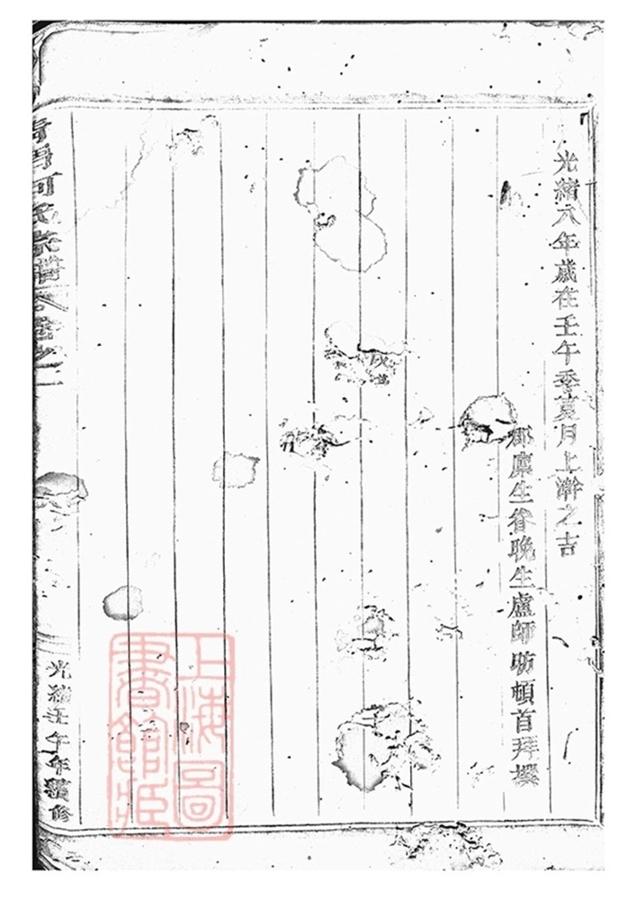 光緒八年歲在壬午季夏月上澣之吉
郡廩生眷晚生盧師昉頓首拜撰
何氏宗譜卷首之二
光緒壬午年續修
上海圖書館藏